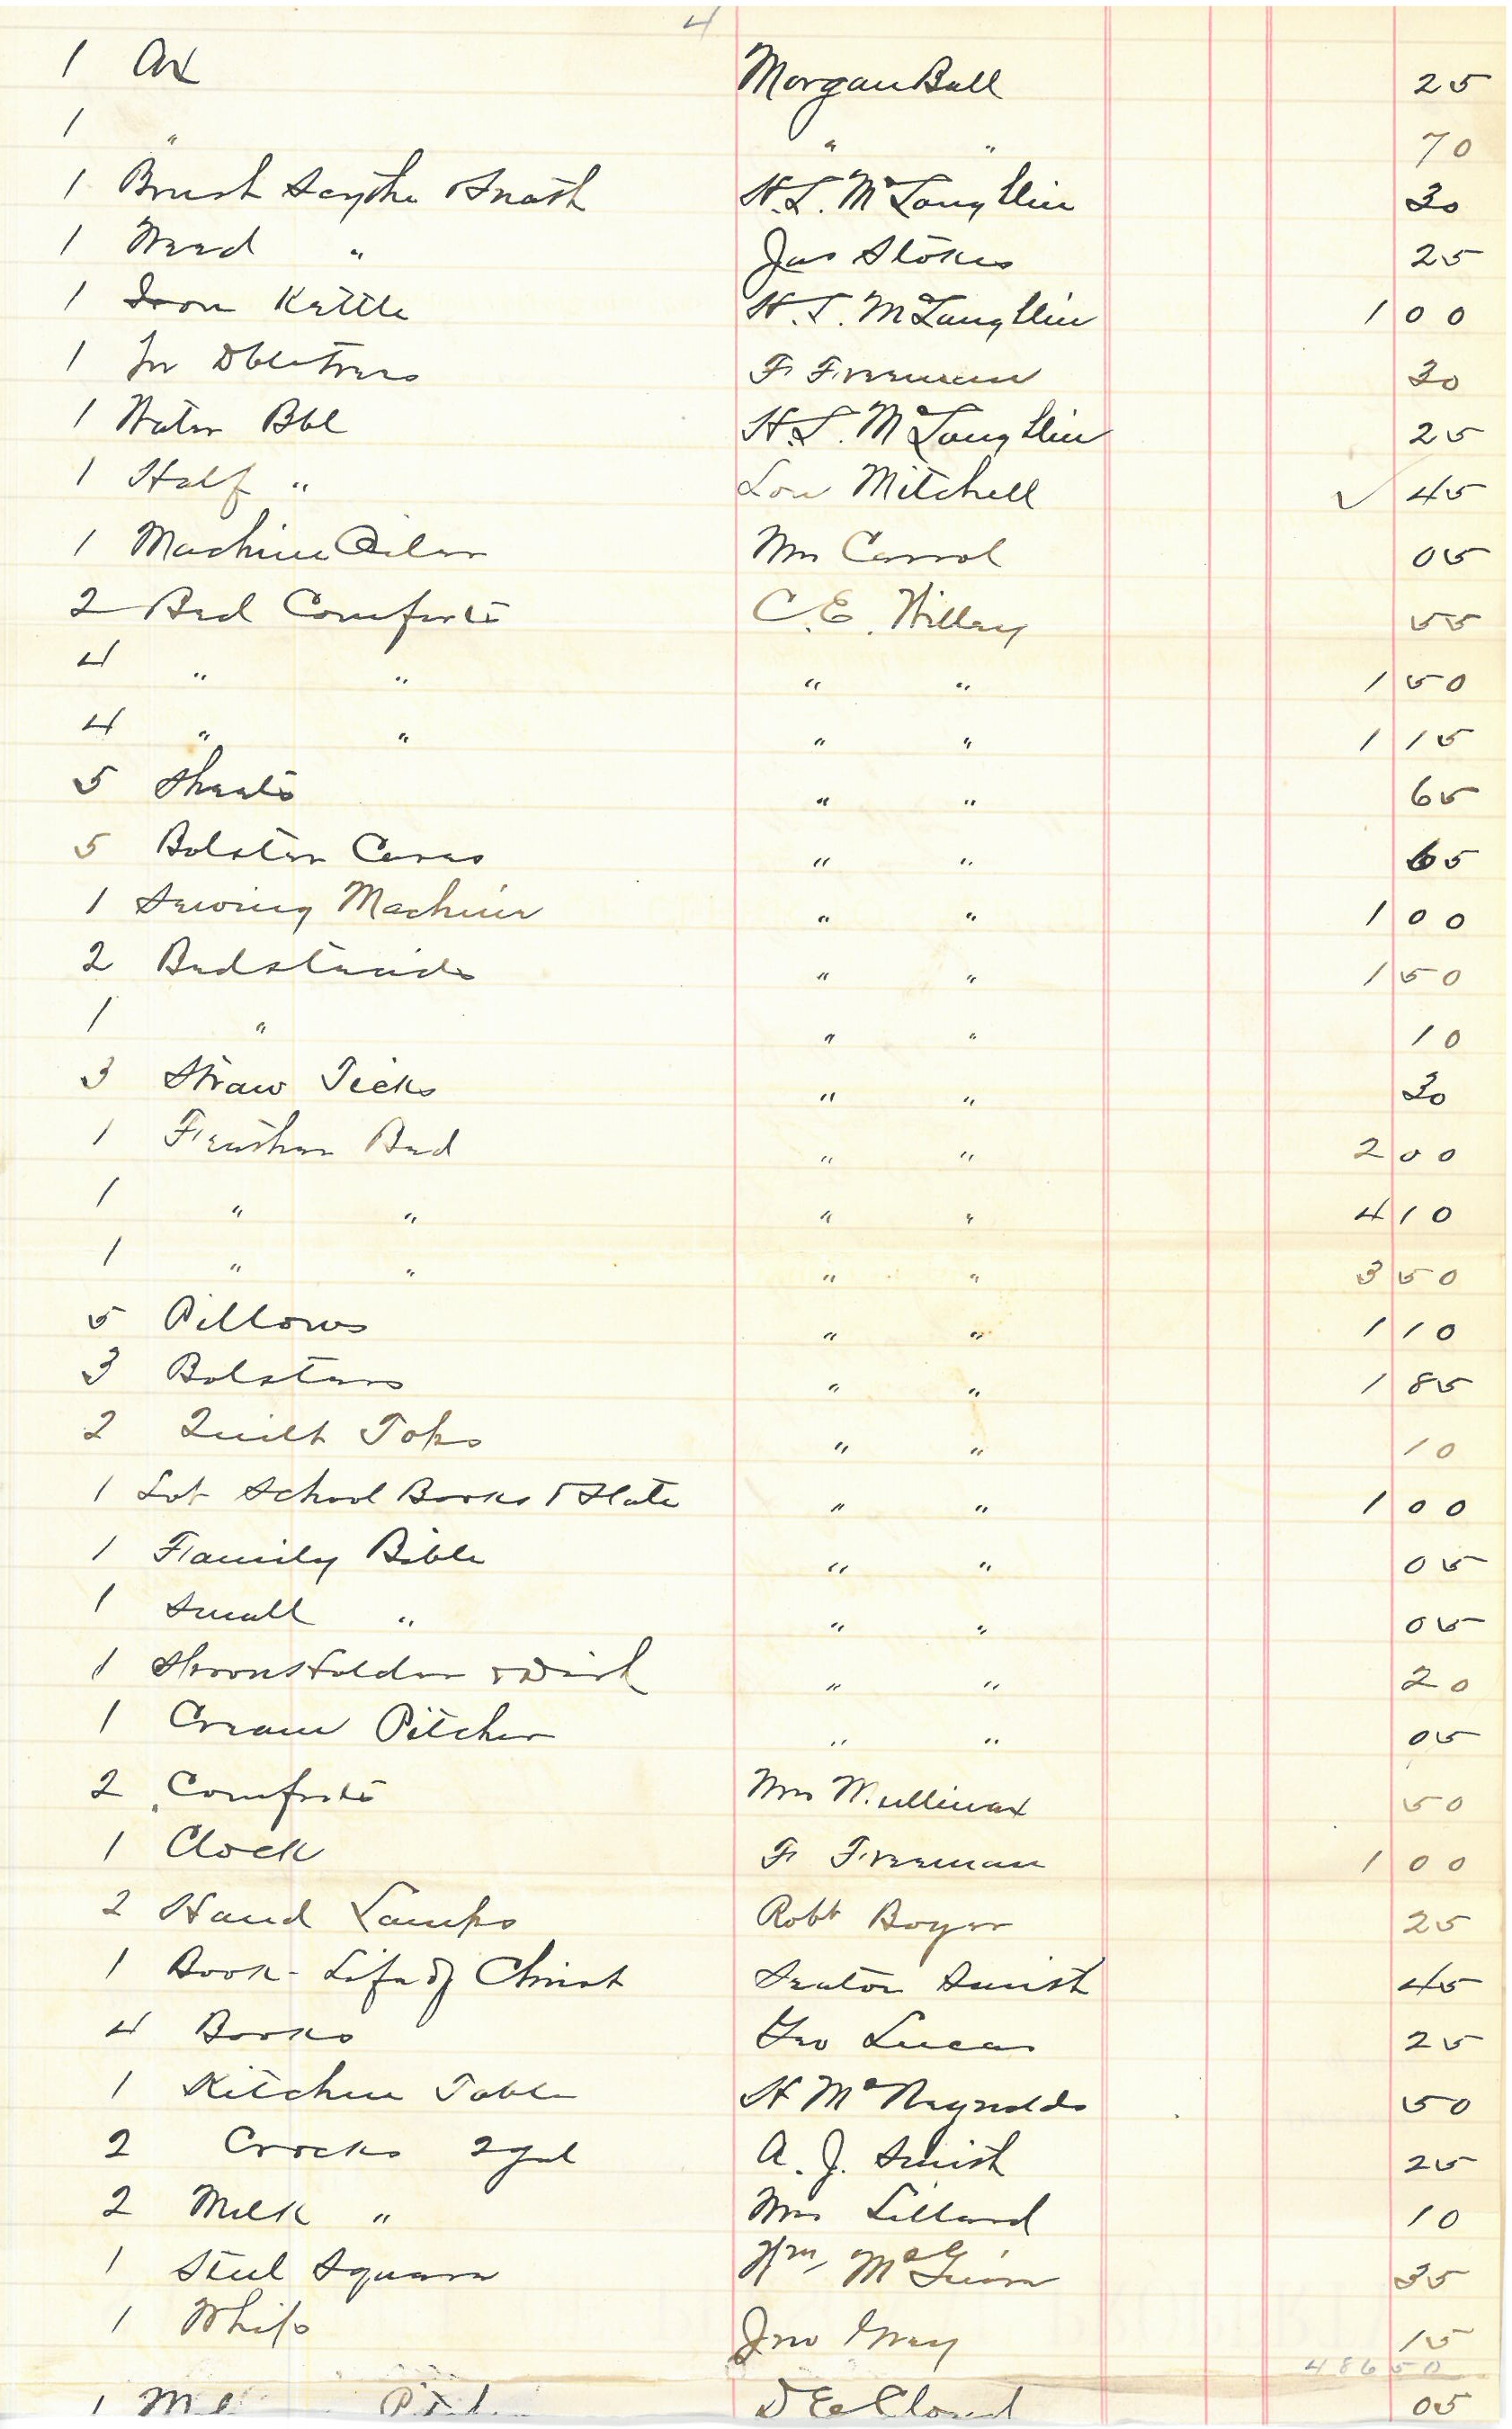 4
1 Ax Morgan Ball 25
1 " " " 70
1 Brush Scythe & Snath H.L. McLaughlin 30
1 Weed " Jas Stokes 25
1 Iron Kettle H.L. McLaughlin 1 00
1 Dbletrees F Freeman 30
1 Water Bbl H.L. McLaughlin 25
1 Half " Lou Mitchell ✓ 45
1 Machine Oiler Wm Carrol 05
2 Bed Comforts C.E. Willey 55
4 " " " " 1 50
4 " " " " 1 15
5 Sheets " " 65
5 Bolster Cases " " 65
1 Sewing Machine " " 1 00
2 Bedsteads " " 1 50
1 " " " 10
3 Straw Ticks " " 30
1 Feather Bed " " 2 00
1 " " " " 4 10
1 " " " " 3 50
5 Pillows " " 1 10
3 Bolsters " " 1 85
2 Quilt Tops " " 10
1 Lot School Books & Slate " " 1 00
1 Family Bible " " 05
1 Small " " " 05
1 Spoon Holder & Dish " " 20
1 Cream Pitcher " " 05
2 Comforts Mrs Mullinax 50
1 Clock F Freeman 1 00
2 Hand Lamps Robt Boyer 25
1 Book - Life of Christ Seaton Smith 45
4 Books Geo Lucas 25
1 Kitchen Table H McReynolds 50
2 Crocks 2 gal A. J. Smith 25
2 Milk " Mrs Lillard 10
1 Steel Square Wm 35
1 Whip Jno Gray 15
486 50
1 D E Cloud 05